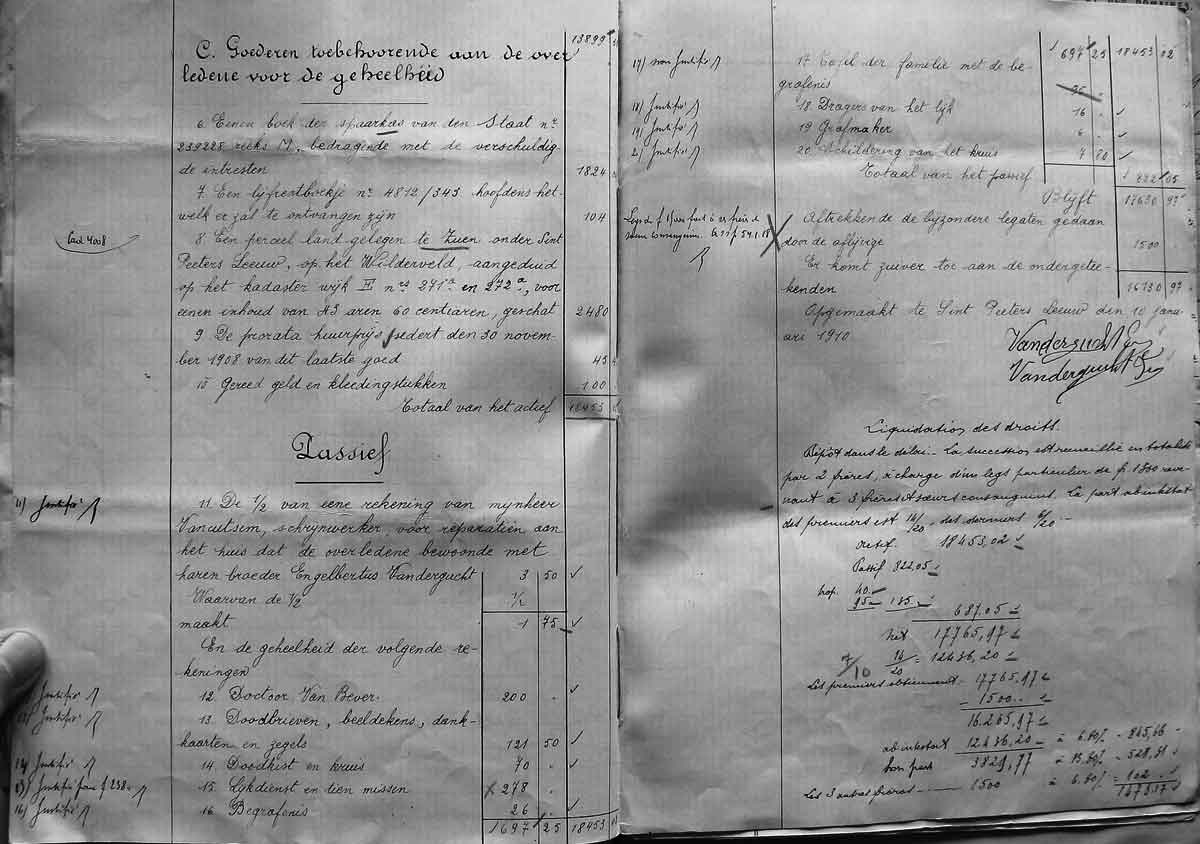 13899
C. Goederen toebehoorende aan de over
ledene voor de geheelheid
6 Eenen boek der spaarkas van den Staat nr
239228 reeks M, bedragende met de verschuldig-
de intresten 1824
7 Een lijfrentboekje nr 4812/343 hoofdens het-
welk er zal te ontvangen zijn 104
Cad 4008
8 Een perceel land gelegen te Zuen onder Sint
Peeters Leeuw, op het Wilderveld, aangeduid
op het kadaster wijk II nrs 271a en 272a, voor
eenen inhoud van 43 aren 60 centiaren, geschat 2480
9 De prorata huurprijs sedert den 30 novem-
ber 1908 van dit laatste goed 45
10 Gereed geld en kleedingstukken 100
Totaal van het actief 18453
Passief
11) Justifié
11. De 1/2 van eene rekening van mynheer
Vancutsem, schrynwerker, voor reparatiën aan
het huis dat de overledene bewoonde met
haren broeder Engelbertus Vandergucht 3 50
Waarvan de 1/2 1/2
maakt 1 75
En de geheelheid der volgende re-
keningen
Justifié 12. Doctoor Van Bever 200
Justifié 13. Doodbrieven, beeldekens, dank-
kaarten en zegels 121 50
14) Justifié 14 Doodkist en kruis 70
15) Justifié pour f 258 15 Lijkdienst en tien missen 278
16) Justifié 16 Begrafenis 26
697 25 18453
697 25 18453 02
17) non justifié 17 Tafel der familie met de be-
grafenis 95
18) Justifié 18 Dragers van het lijk 16
19) Justifié 19 Grafmaker 6
2) Justifié 20 Schildering van het kruis 7 80
Totaal van het passief 822 05
Blijft 17630 97
Aftrekkende de byzondere legaten gedaan
door de aflyvige 1500
Er komt zuiver toe aan de ondergetee-
kenden 16130 97
Opgemaakt te Sint Peeters Leeuw den 10 janu-
ari 1910
Vandergucht
Vandergucht
Liquidation des droits.
Dépôt dans le délai. La succession est recueillie en totalité
par 2 frères, à charge d'un legs particulier de fr 1500 reve-
nant à 3 frères et sœurs consanguins. La part ab intestat
des premiers est 14/20, des derniers 6/20
actif 18453,02
Passif 822,05
40
95 135
687,05
Net 17765,97
7/10 14/20 = 12436,20
Les premiers obtiennent 17765,97
1500
16.265,97
ab intestat 12436,20 à 6.80% 845,66
hors part 3829,77 à 13,80% 528,51
Les 3 autres frères 1500 à 6.80% 102